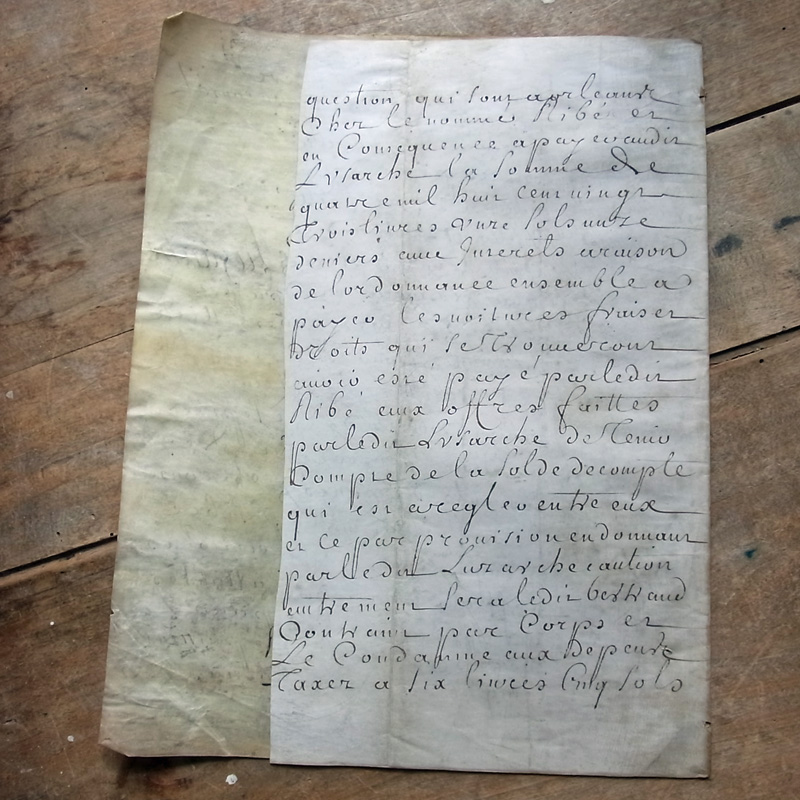 question qui sont apréavant
Cher le nommé Ribé et
en Consequence a payer audit
Lusarche la somme de
quatre mil huit cent vingt
trois livres onze sols unze
deniers avec Interets a raison
de l'ordonnance ensemble a
payer les voitures frais et
Droits qui se trouveront
avoir esté payé par ledit
Ribé aux offres faittes
par ledit Lusarche de Tenir
Compte de la solde de compte
qui est a regler entre eux
et ce par provision en donnant
par ledit Lusarche caution
autrement sera ledit bertrand
Contraint par Corps et
Le Condamne aux depens
Taxez a six livres Cinq sols